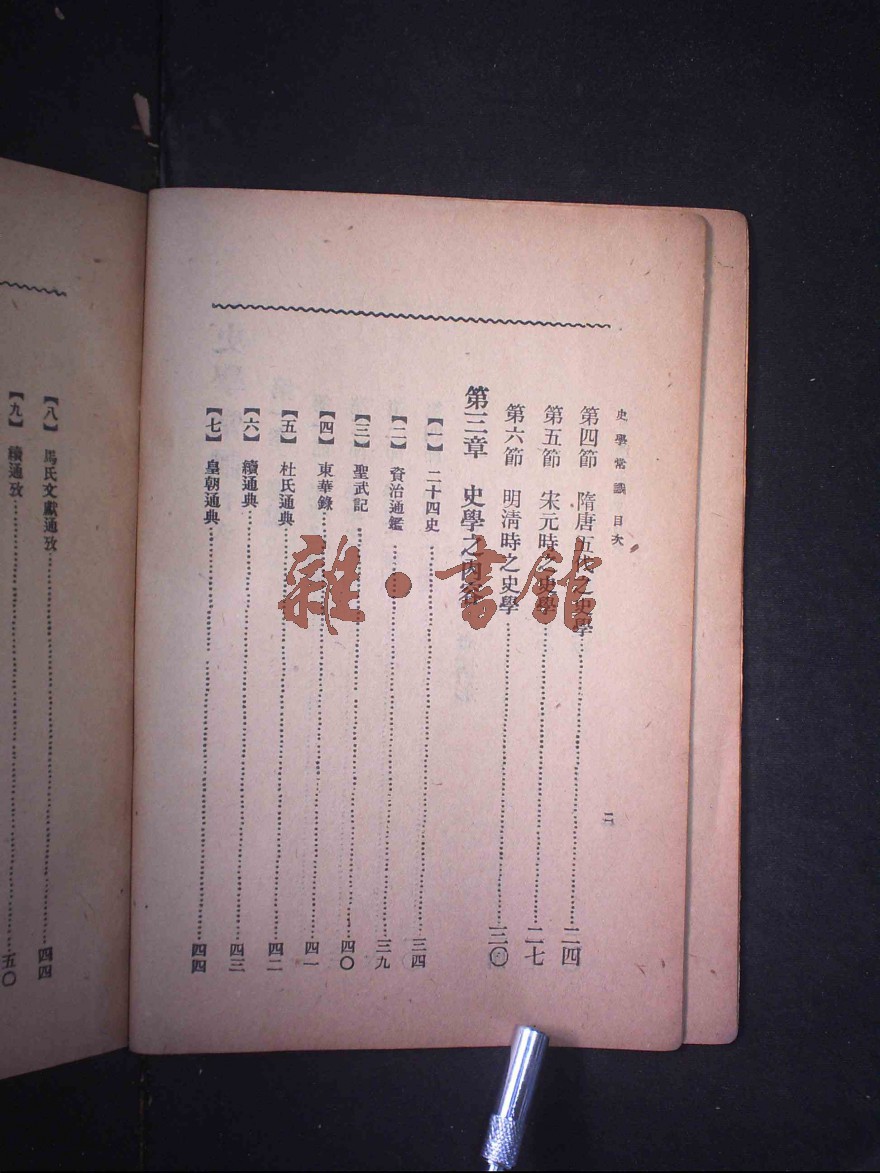 史學常識 目次
二
第四節 隋唐五代之史學⋯⋯二四
第五節 宋元時之史學⋯⋯二七
第六節 明清時之史學⋯⋯三〇
第三章 史學之內容
【一】 二十四史⋯⋯三四
【二】 資治通鑑⋯⋯三九
【三】 聖武記⋯⋯四〇
【四】 東華錄⋯⋯四一
【五】 杜氏通典⋯⋯四二
【六】 續通典⋯⋯四三
【七】 皇朝通典⋯⋯四四
【八】 馬氏文獻通攷⋯⋯四四
【九】 續通攷⋯⋯五〇
雜·書館